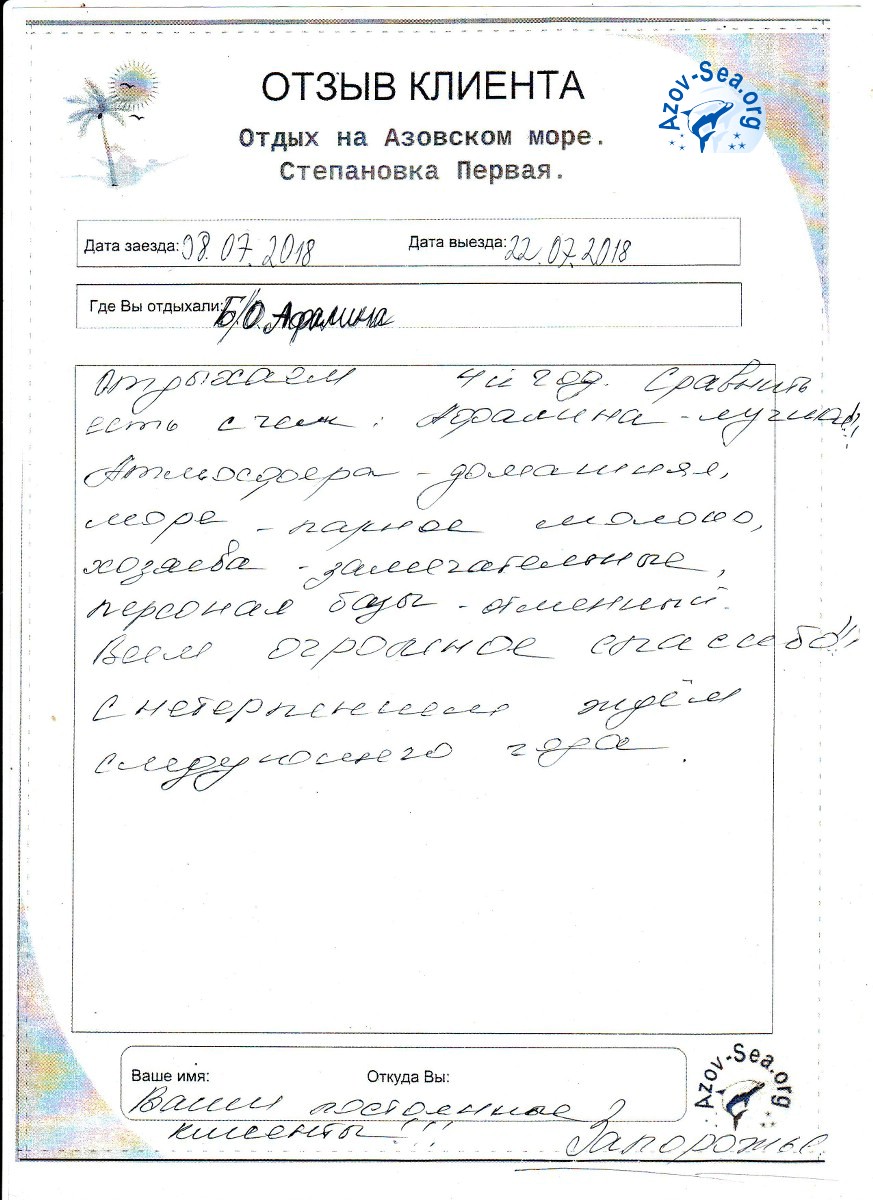 ОТЗЫВ КЛИЕНТА
Azov-Sea.org
Отдых на Азовском море.
Степановка Первая.
Дата заезда: 08.07.2018 Дата выезда: 22.07.2018
Где Вы отдыхали: Б/О Афалина
Отдыхаем 4й год. Сравнить
есть с чем: Афалина - лучшая!!
Атмосфера - домашняя,
море - парное молоко,
хозяева - замечательные,
персонал базы - отменный.
Всем огромное спасибо!!
С нетерпением ждём
следующего года.
Ваше имя: Откуда Вы:
Azov-Sea.org
Ваши постоянные
клиенты!!! Запорожье